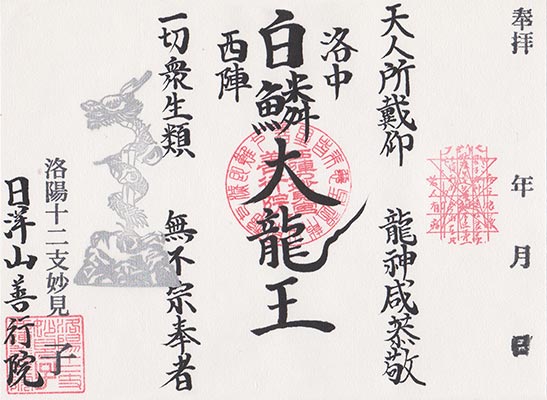 奉拝　年　月　日
天人所戴仰　龍神咸恭敬
洛中
西陣
白鱗大龍王
一切衆生類　無不宗奉者
洛陽十二支妙見　子
日洋山善行院